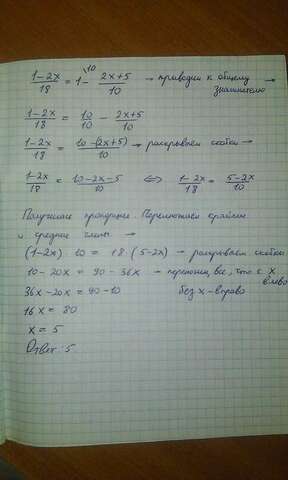 (1-2x)/18 = 1^{\10} - (2x+5)/10 → приводим к общему знаменателю →
(1-2x)/18 = 10/10 - (2x+5)/10
(1-2x)/18 = (10-(2x+5))/10 → раскрываем скобки →
(1-2x)/18 = (10-2x-5)/10 ⇔ (1-2x)/18 = (5-2x)/10
Получилась пропорция. Перемножаем крайние
и средние члены →
(1-2x) 10 = 18 (5-2x) → раскрываем скобки
10-20x = 90-36x → переносим все, что с x влево
36x-20x = 90-10 без x-вправо
16x = 80
x = 5
Ответ: 5